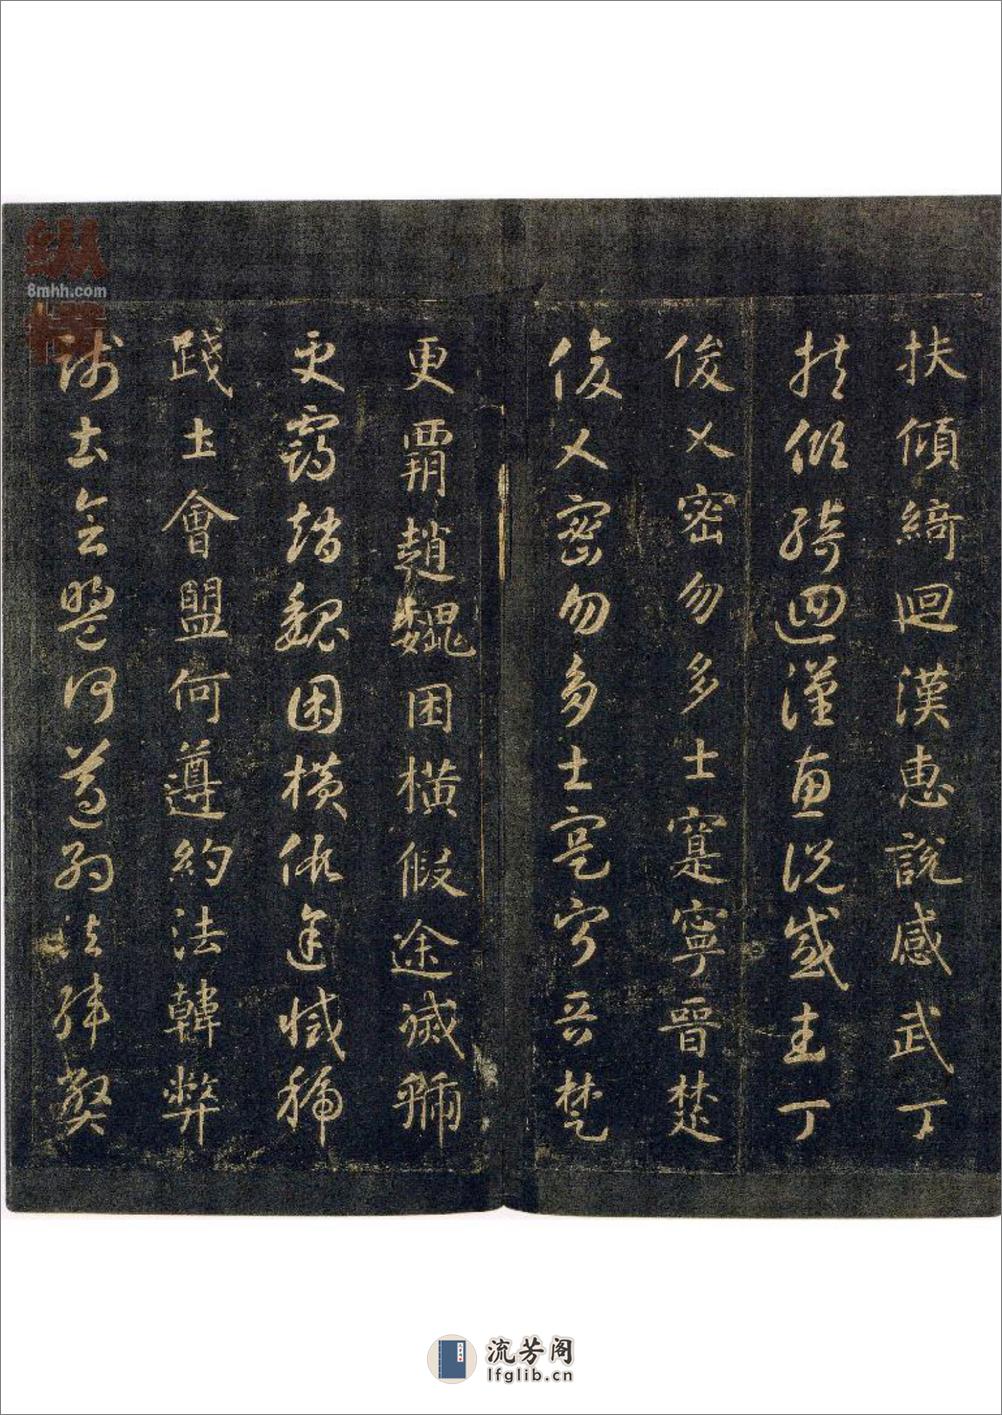 扶傾綺迴漢惠說感武丁
扶傾綺迴漢惠說感武丁
俊乂密勿多士寔寧晉楚
俊乂密勿多士寔寧晉楚
更覇趙魏困橫假途滅虢
更覇趙魏困橫假途滅虢
踐土會盟何遵約法韓弊
踐土會盟何遵約法韓弊
纵横
8mhh.com
流芳阁
lfglib.cn